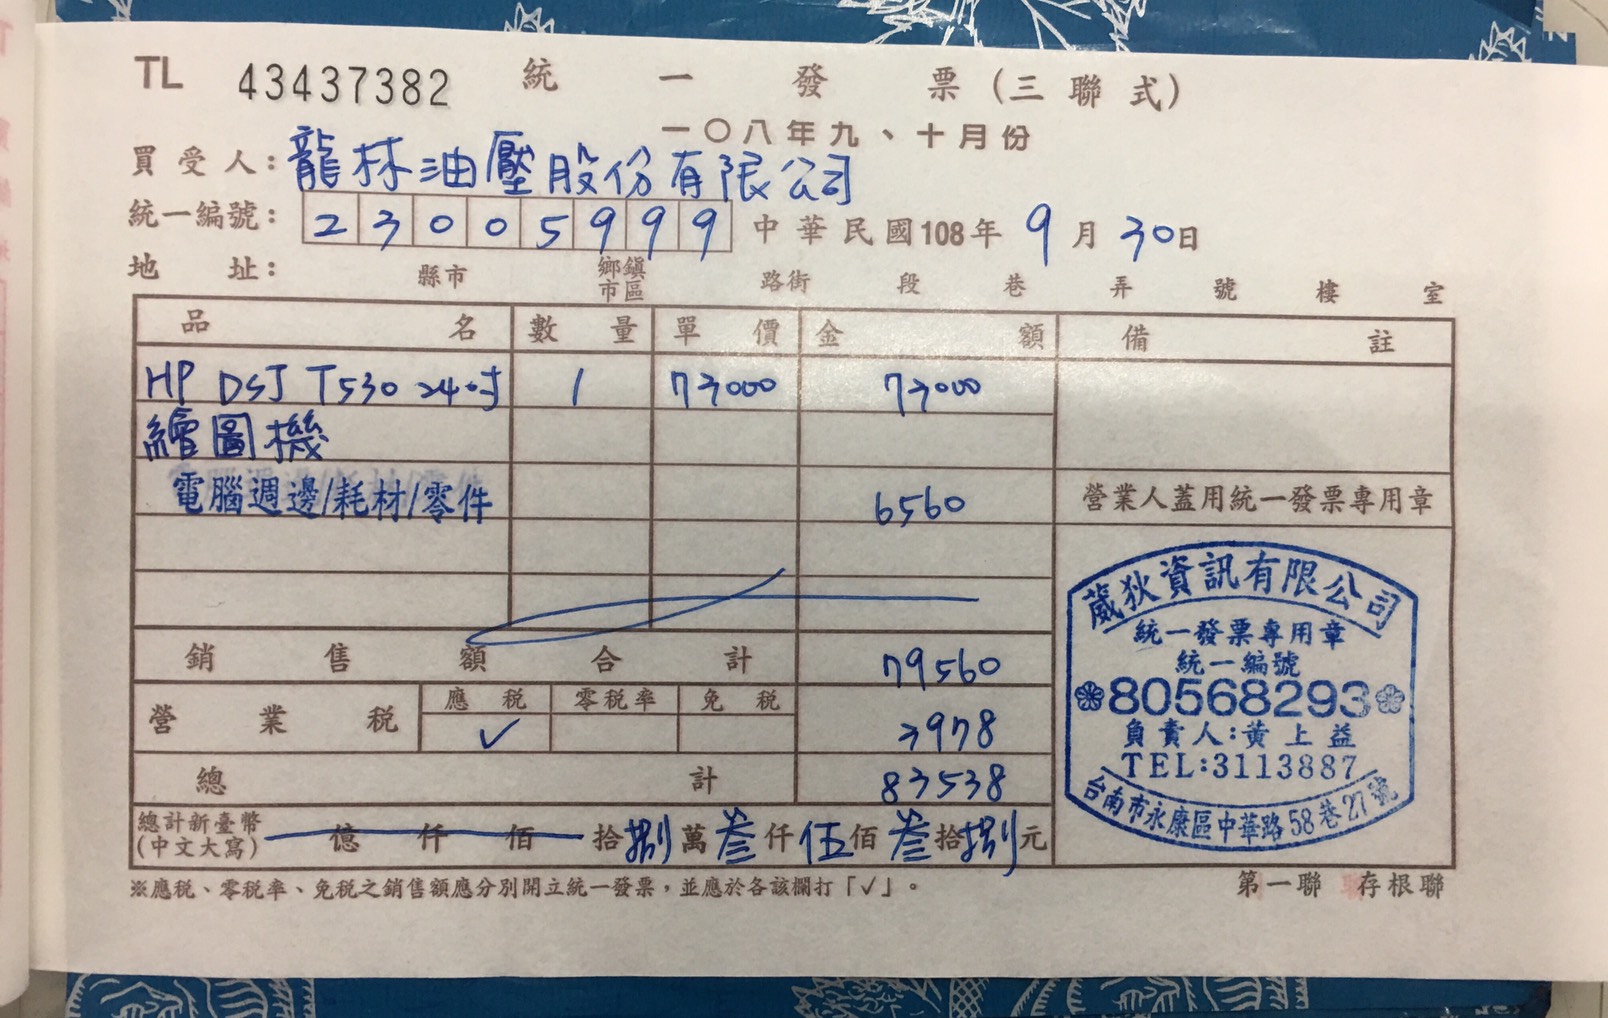 TL 43437382 統一發票(三聯式)
一〇八年九、十月份
買受人:龍林油壓股份有限公司
統一編號:23005999 中華民國108年9月30日
地址: 縣市 鄉鎮市區 路街 段 巷 弄 號 樓 室
品名 數量 單價 金額 備註
HP DSJ T530 24吋 1 73000 73000
繪圖機
電腦週邊/耗材/零件 6560
營業人蓋用統一發票專用章
銷售額合計 79560
營業稅 應稅 零稅率 免稅
✓ 3978
總計 83538
總計新臺幣(中文大寫) 億仟佰拾捌萬叁仟伍佰叁拾捌元
葳狄資訊有限公司
統一發票專用章
統一編號
80568293
負責人:黃上益
TEL:3113887
台南市永康區中華路58巷27號
※應稅、零稅率、免稅之銷售額應分別開立統一發票,並應於各該欄打「✓」。
第一聯 存根聯